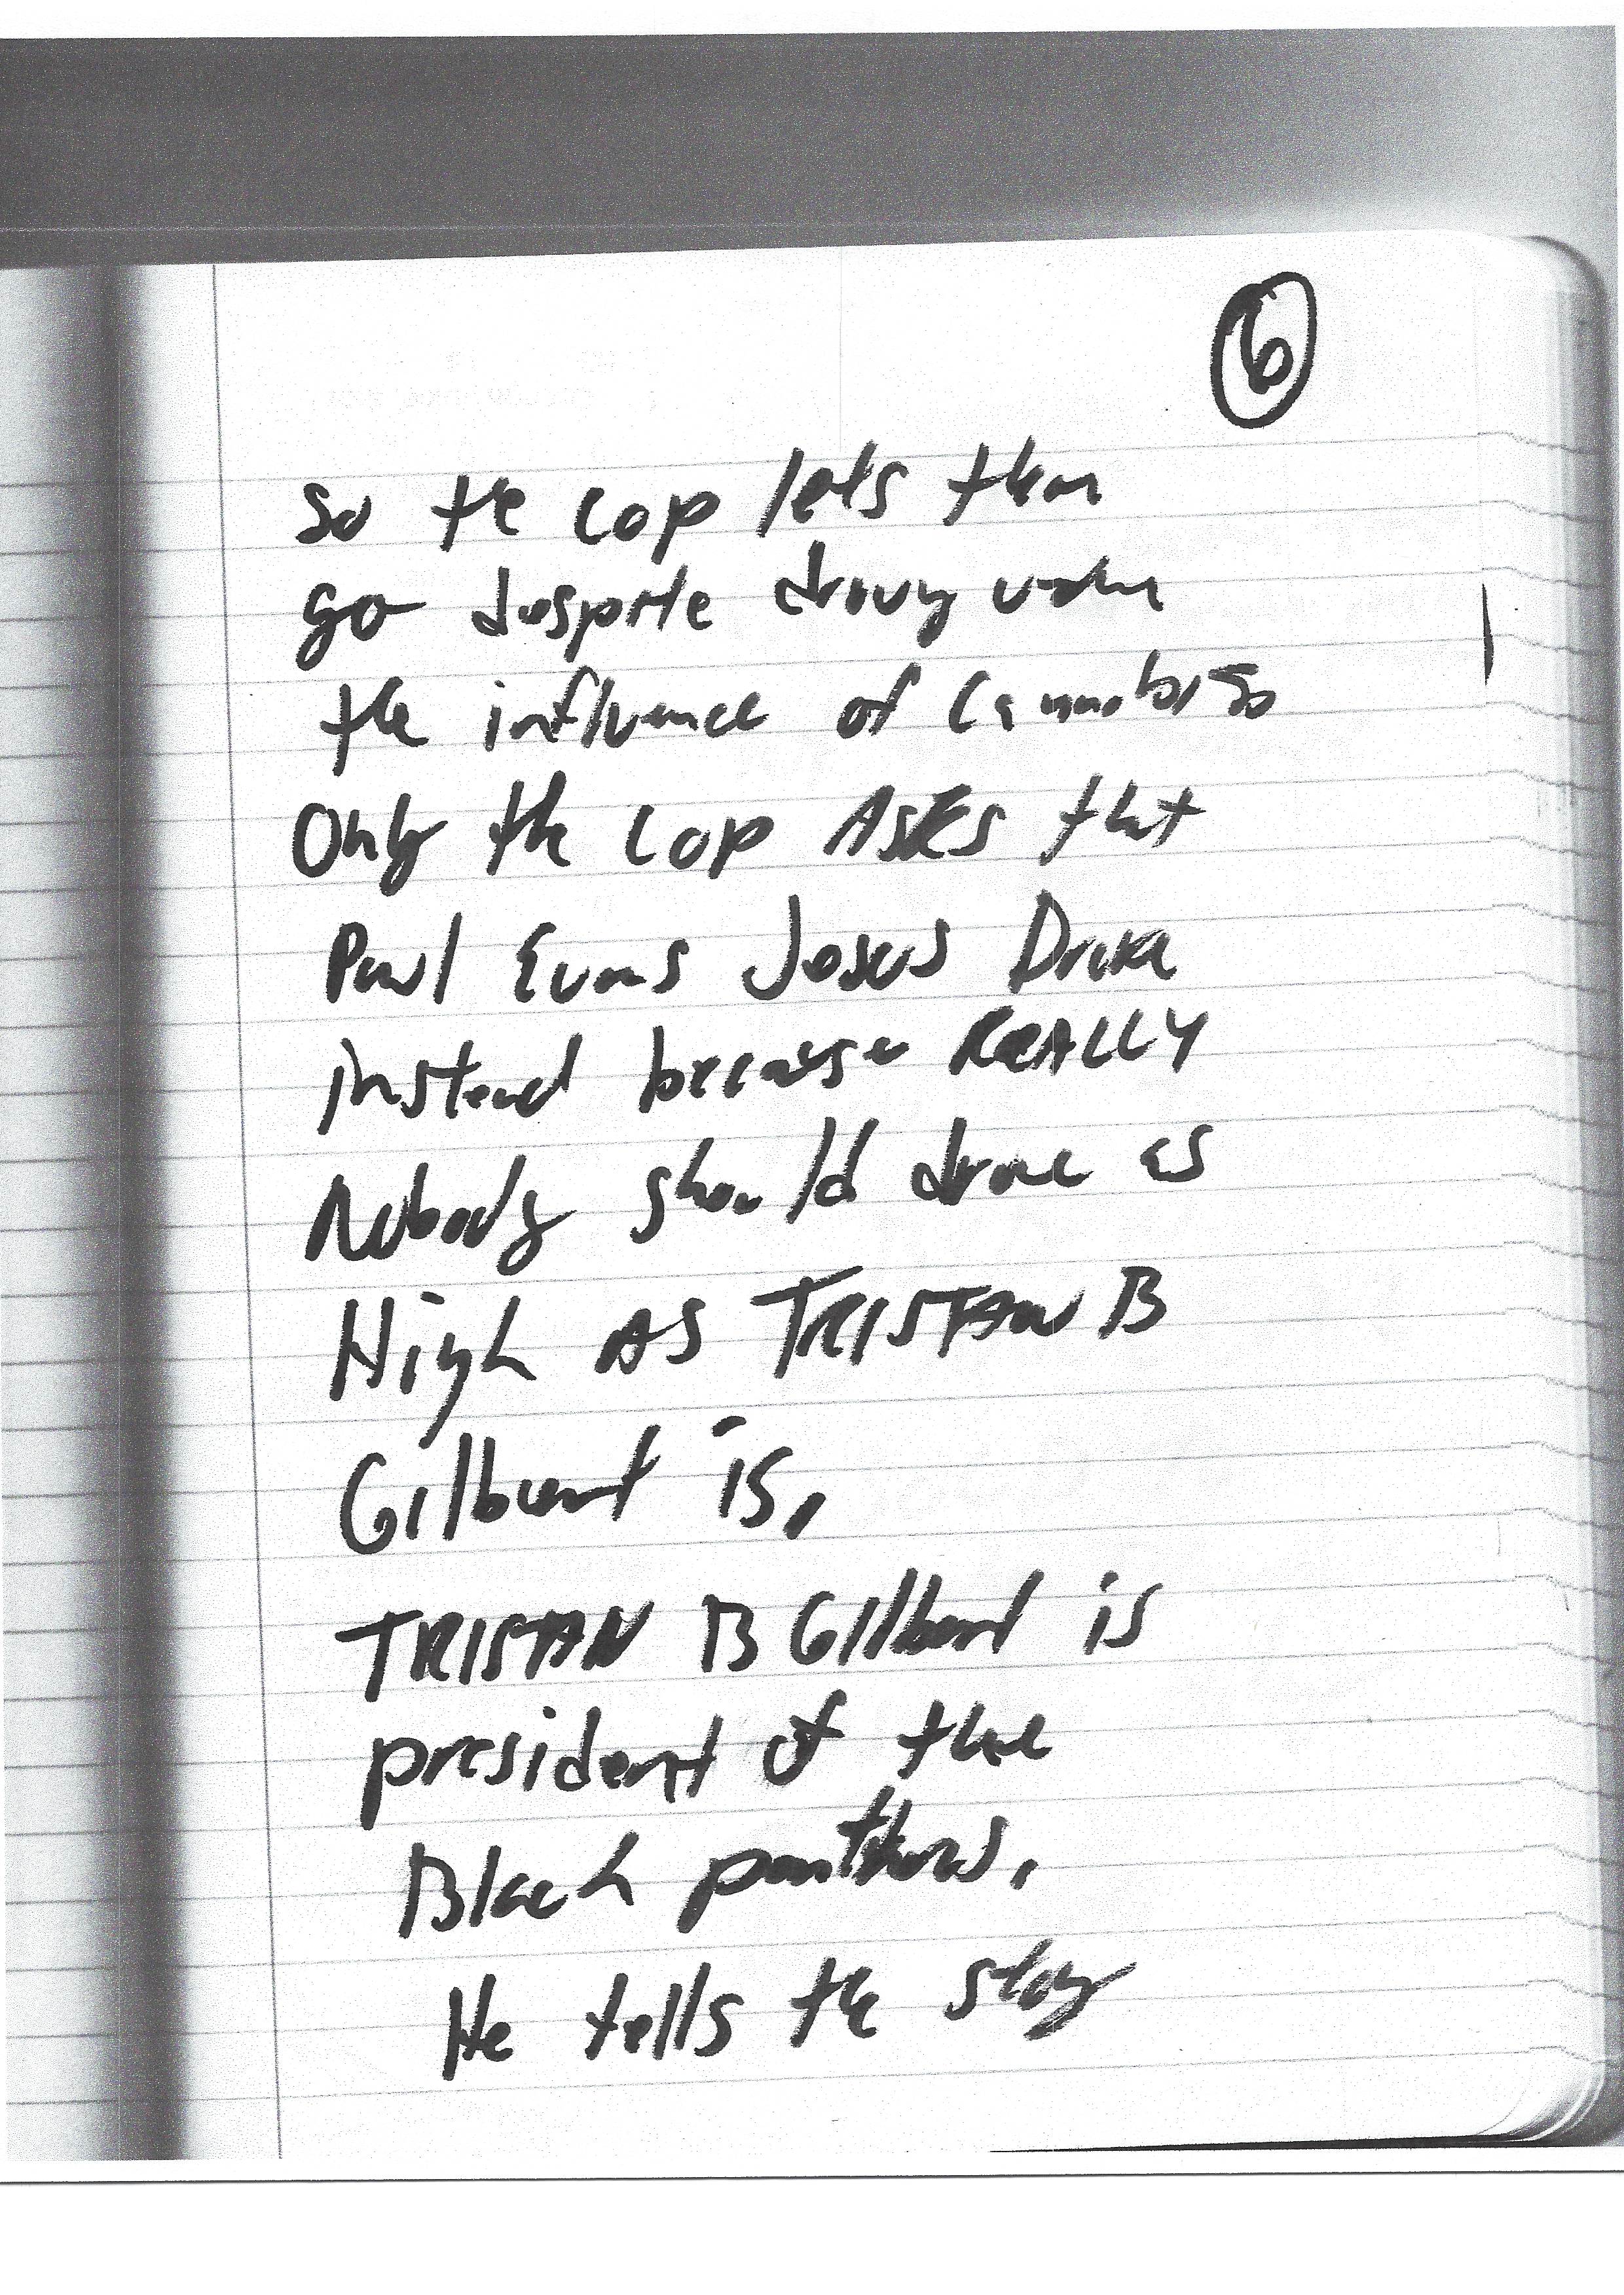 6
So the cop lets them
go despite driving under
the influence of Cannabis
Only the cop ASKS that
Paul Evans Jesus Drive
instead because REALLY
Nobody should drive as
High AS TRISTAN B
Gilbert is,
TRISTAN B Gilbert is
president of the
Black panthers,
He tells the story